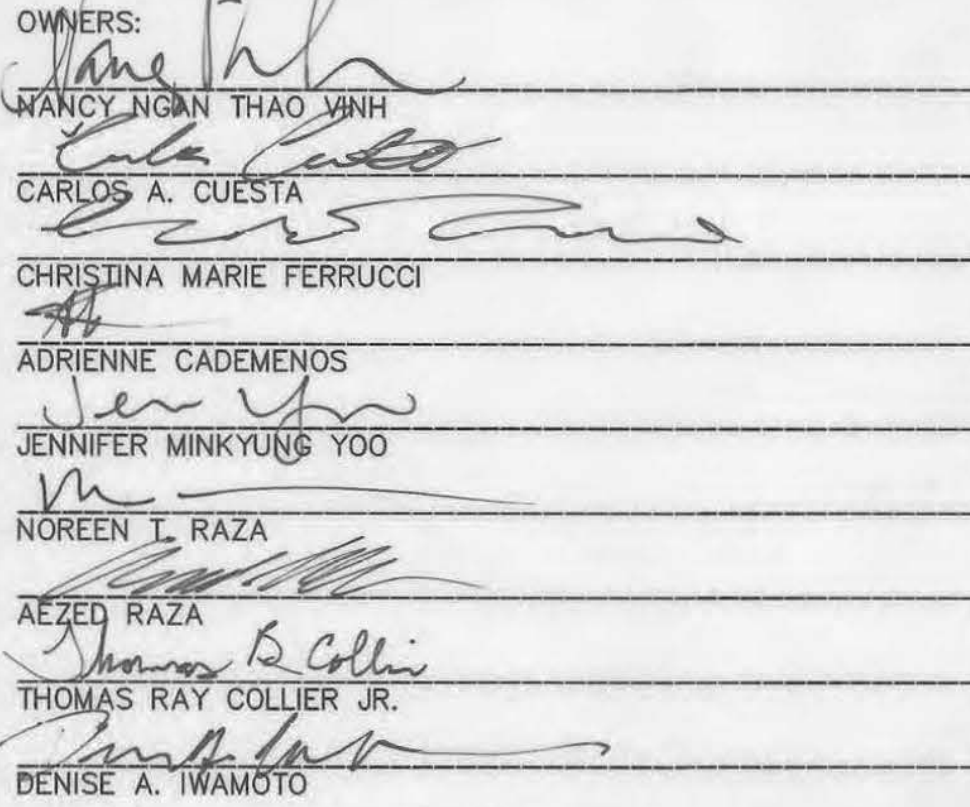 OWNERS:
NANCY NGAN THAO VINH
CARLOS A. CUESTA
CHRISTINA MARIE FERRUCCI
ADRIENNE CADEMENOS
Jen Yoo
JENNIFER MINKYUNG YOO
NOREEN T. RAZA
AEZED RAZA
Thomas R Collier
THOMAS RAY COLLIER JR.
DENISE A. IWAMOTO